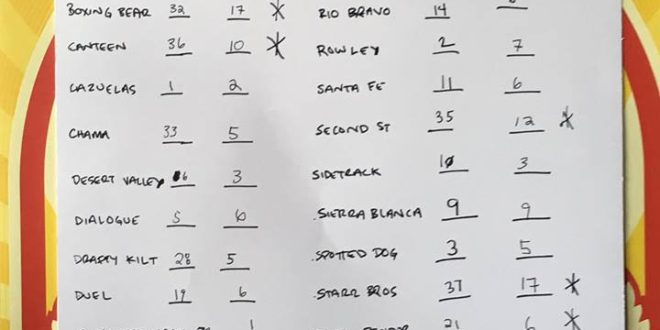 BOXING BEAR 32 17 *
CANTEEN 36 10 *
CAZUELAS 1 2
CHAMA 33 5
DESERT VALLEY 6 3
DIALOGUE 5 6
DRAFTY KILT 28 5
DUEL 19 6
1
RIO BRAVO 14
ROWLEY 2 7
SANTA FE 11 6
SECOND ST 35 12 *
SIDETRACK 10 3
SIERRA BLANCA 9 9
SPOTTED DOG 3 5
STARR BROS 37 17 *
21 6 *